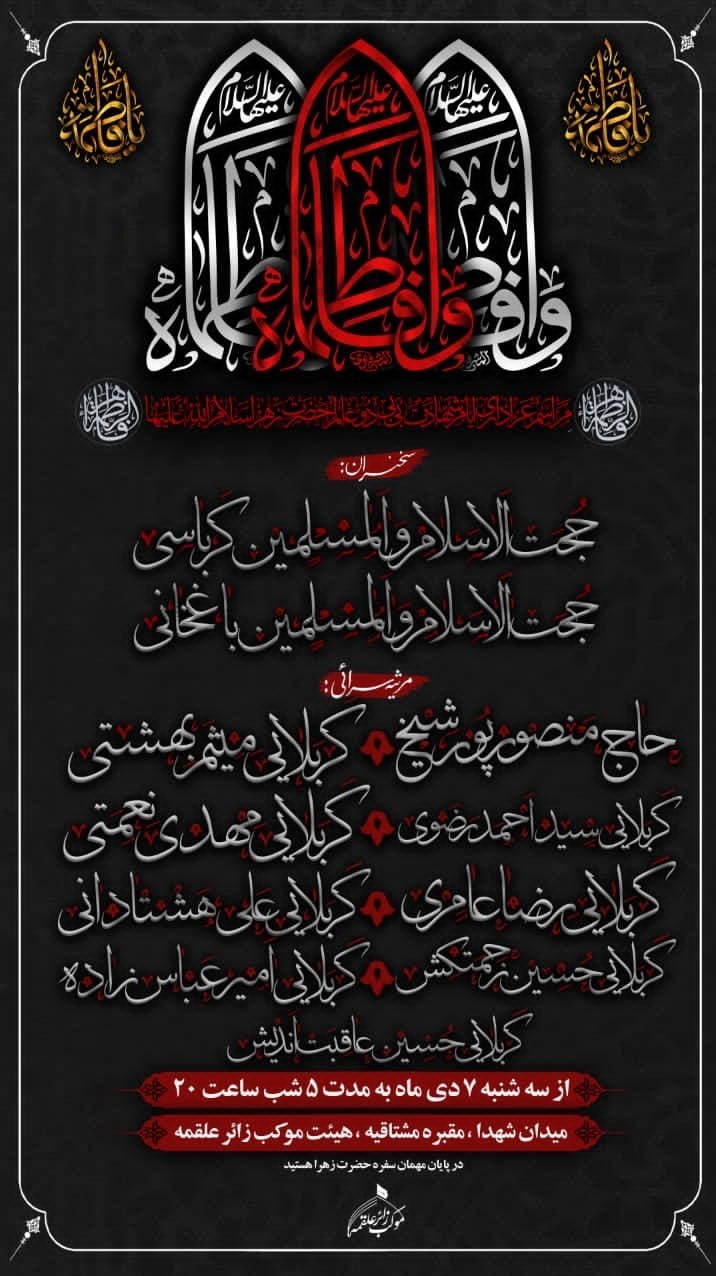 یا فاطمه
یا فاطمه
علیها السلام
علیها السلام
علیها السلام
وا فاطماه
وا فاطماه
مراسم عزاداری ایام شهادت بی بی دو عالم حضرت زهرا سلام الله علیها
سخنران:
حجت الاسلام والمسلمین کرباسی
حجت الاسلام والمسلمین باغخانی
مرثیه سرائی:
حاج منصور پورشیخ کربلایی میثم بهشتی
کربلایی سید احمد رضوی کربلایی مهدی نعمتی
کربلایی رضا عامری کربلایی علی هشتادانی
کربلایی حسین زحمتکش کربلایی امیر عباس زاده
کربلایی حسین عاقبت اندیش
از سه شنبه ۷ دی ماه به مدت ۵ شب ساعت ۲۰
میدان شهدا ، مقبره مشتاقیه ، هیئت موکب زائر علقمه
در پایان مهمان سفره حضرت زهرا هستید
موکب زائر علقمه